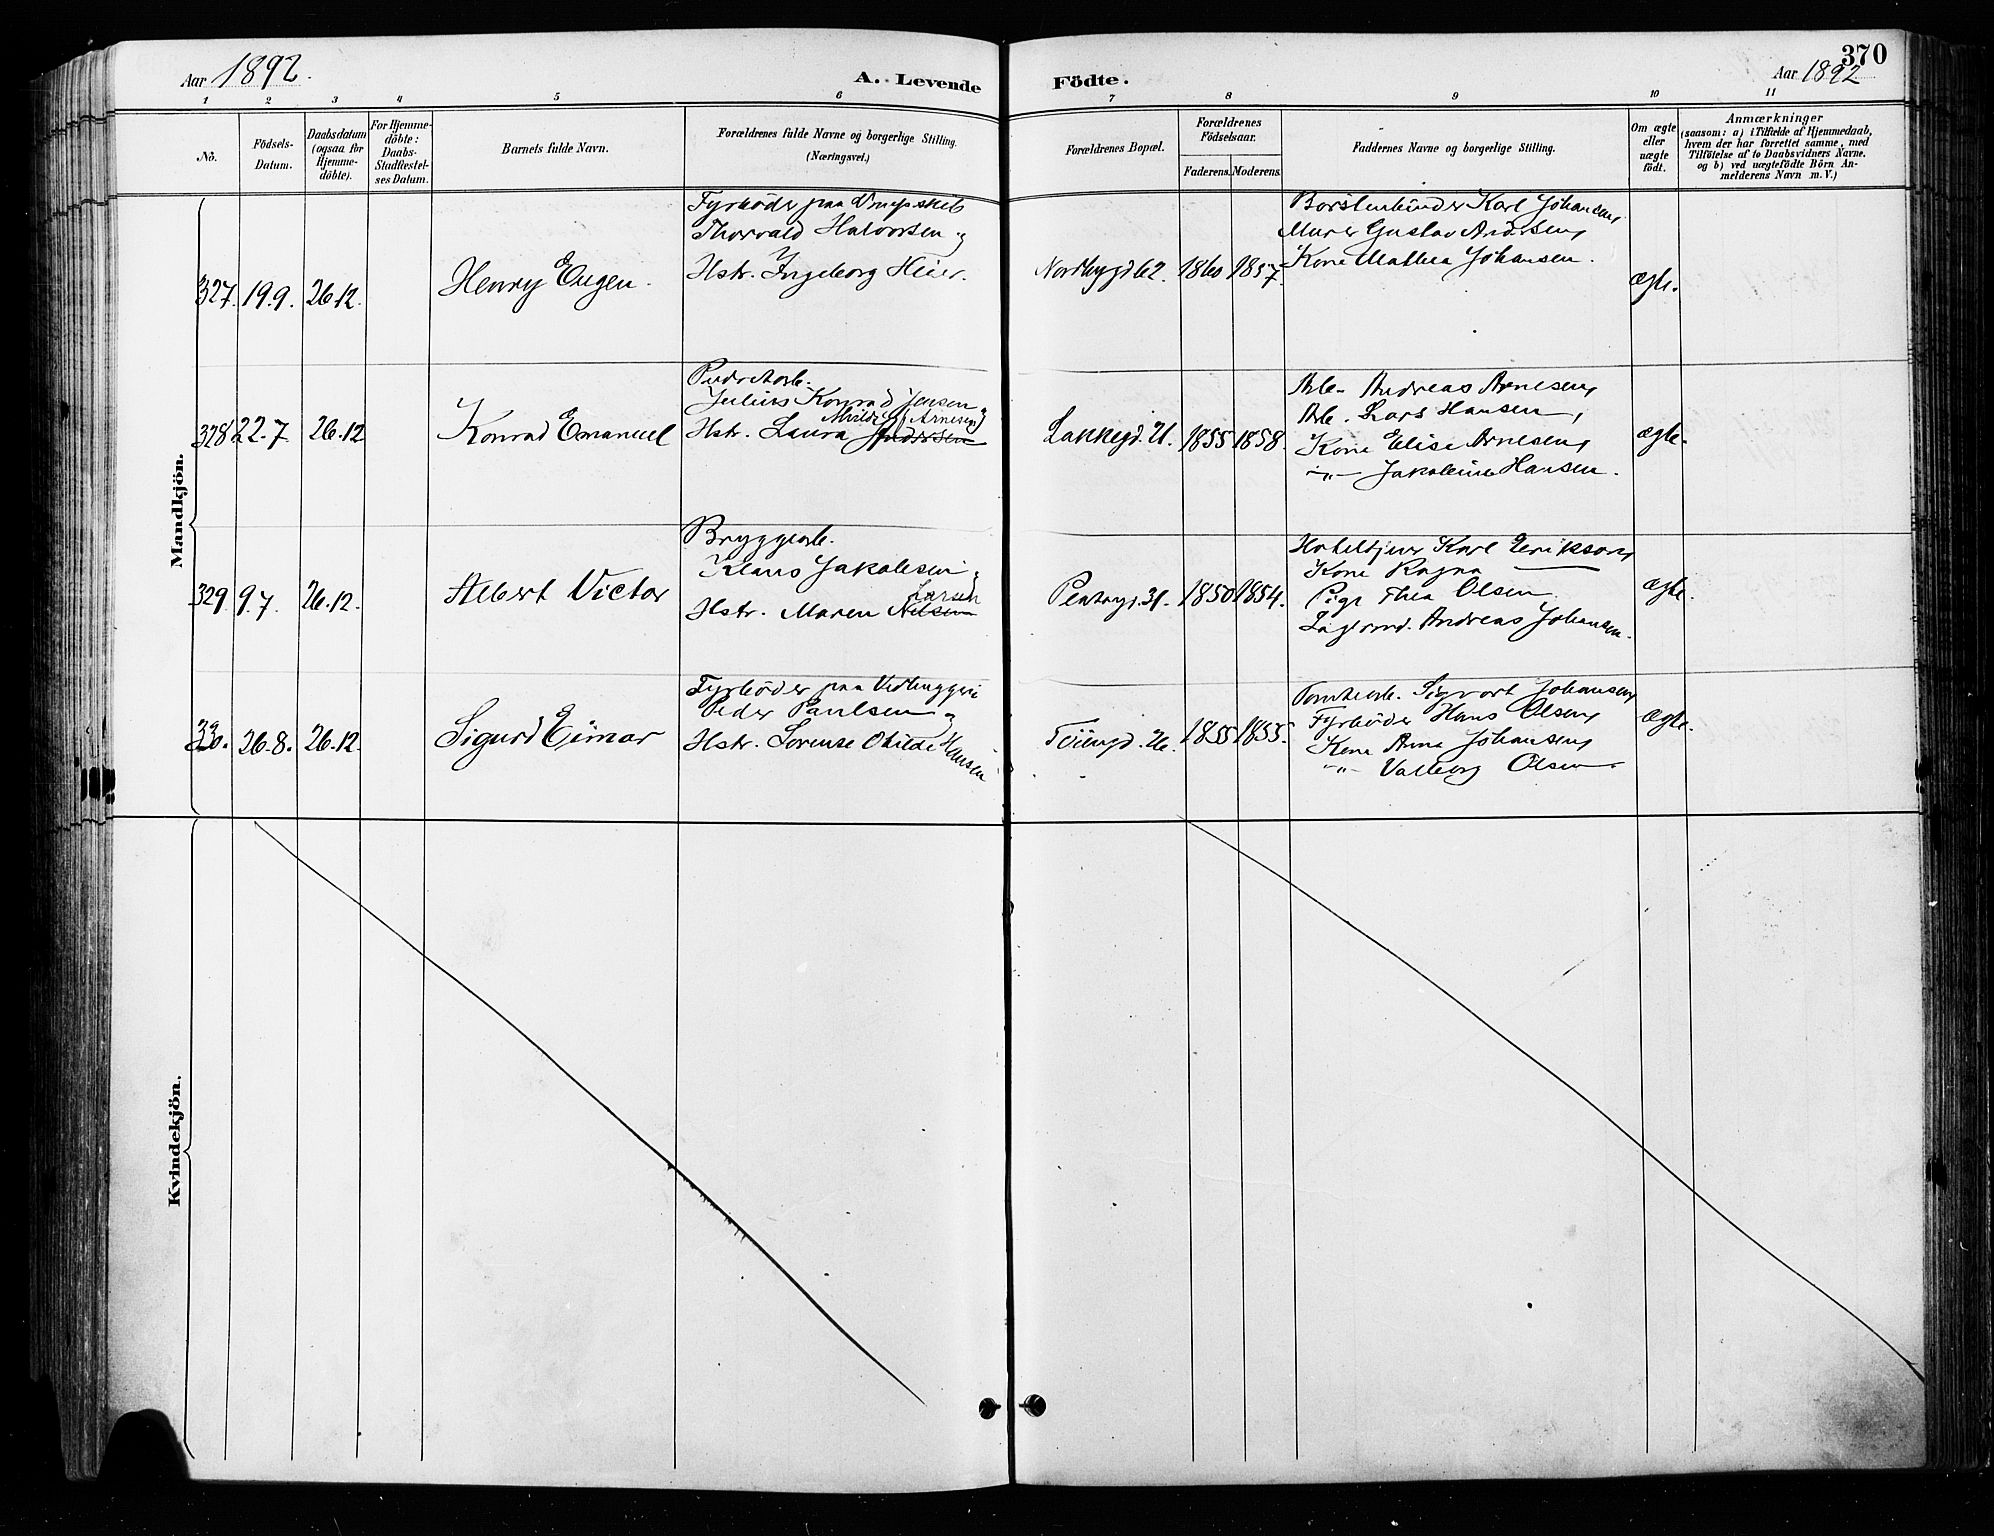 370
Aar 1892.
A. Levende
Födte.
Aar 1892
1 2 3 4 5 6 7 8 9 10 11
No.
Födsels-
Datum.
Daabsdatum
(ogsaa for
Hjemme-
döbte).
For Hjemme-
döbte:
Daabs-
Stadfæstel-
ses Datum.
Barnets fulde Navn.
Forældrenes fulde Navne og borgerlige Stilling.
(Næringsvei.)
Forældrenes Bopæl.
Forældrenes
Födselsaar.
Faderens. Moderens.
Faddernes Navne og borgerlige Stilling.
Om ægte
eller
uægte
födt.
Anmærkninger
(saasom: a) i Tilfælde af Hjemmedaab,
hvem der har forrettet samme, med
Tilföielse af to Daabsvidners Navne,
og b) ved uægtefödte Börn An-
melderens Navn m. V.)
Mandkjön.
327. 19.9. 26.12.
Henry Eugen.
Fyrböder paa Dampskib
Thorvald Halvorsen og
Hstr. Ingeborg Heier.
Nordbygd 62. 1860 1857.
Börstenbinder Karl Johansen,
Murer Gustav Andersen,
Kone Mathea Johansen.
ægte.
328. 22.7. 26.12
Konrad Emanuel
Julius Konrad Jensen
Hstr. Laura Andersen
Mathilde (Arnesen)
Lakkegd. 21. 1855 1858.
Arb. Andreas Arnesen,
Arb. Lars Hansen,
Kone Elise Arnesen,
-"- Jakobine Hansen.
ægte.
329. 9.7. 26.12.
Albert Victor
Bryggearb.
Klaus Jakobsen
Hstr. Maren Nilsen
Larsen
31. 1850 1854.
Karl Erikson,
Kone Ragna
Pige Thea Olsen
Andreas Johansen.
ægte.
330. 26.8. 26.12.
Sigurd Eimar
Fyrböder paa Vedhuggeri
Peder Paulsen og
Hstr. Lorense Otilde Hansen
Töiengd. 26. 1855 1855.
Tomtearb. Sigvart Johansen,
Fyrböder Hans Olsen,
Kone Anna Johansen,
-"- Valborg Olsen
ægte.
Kvindekjön.